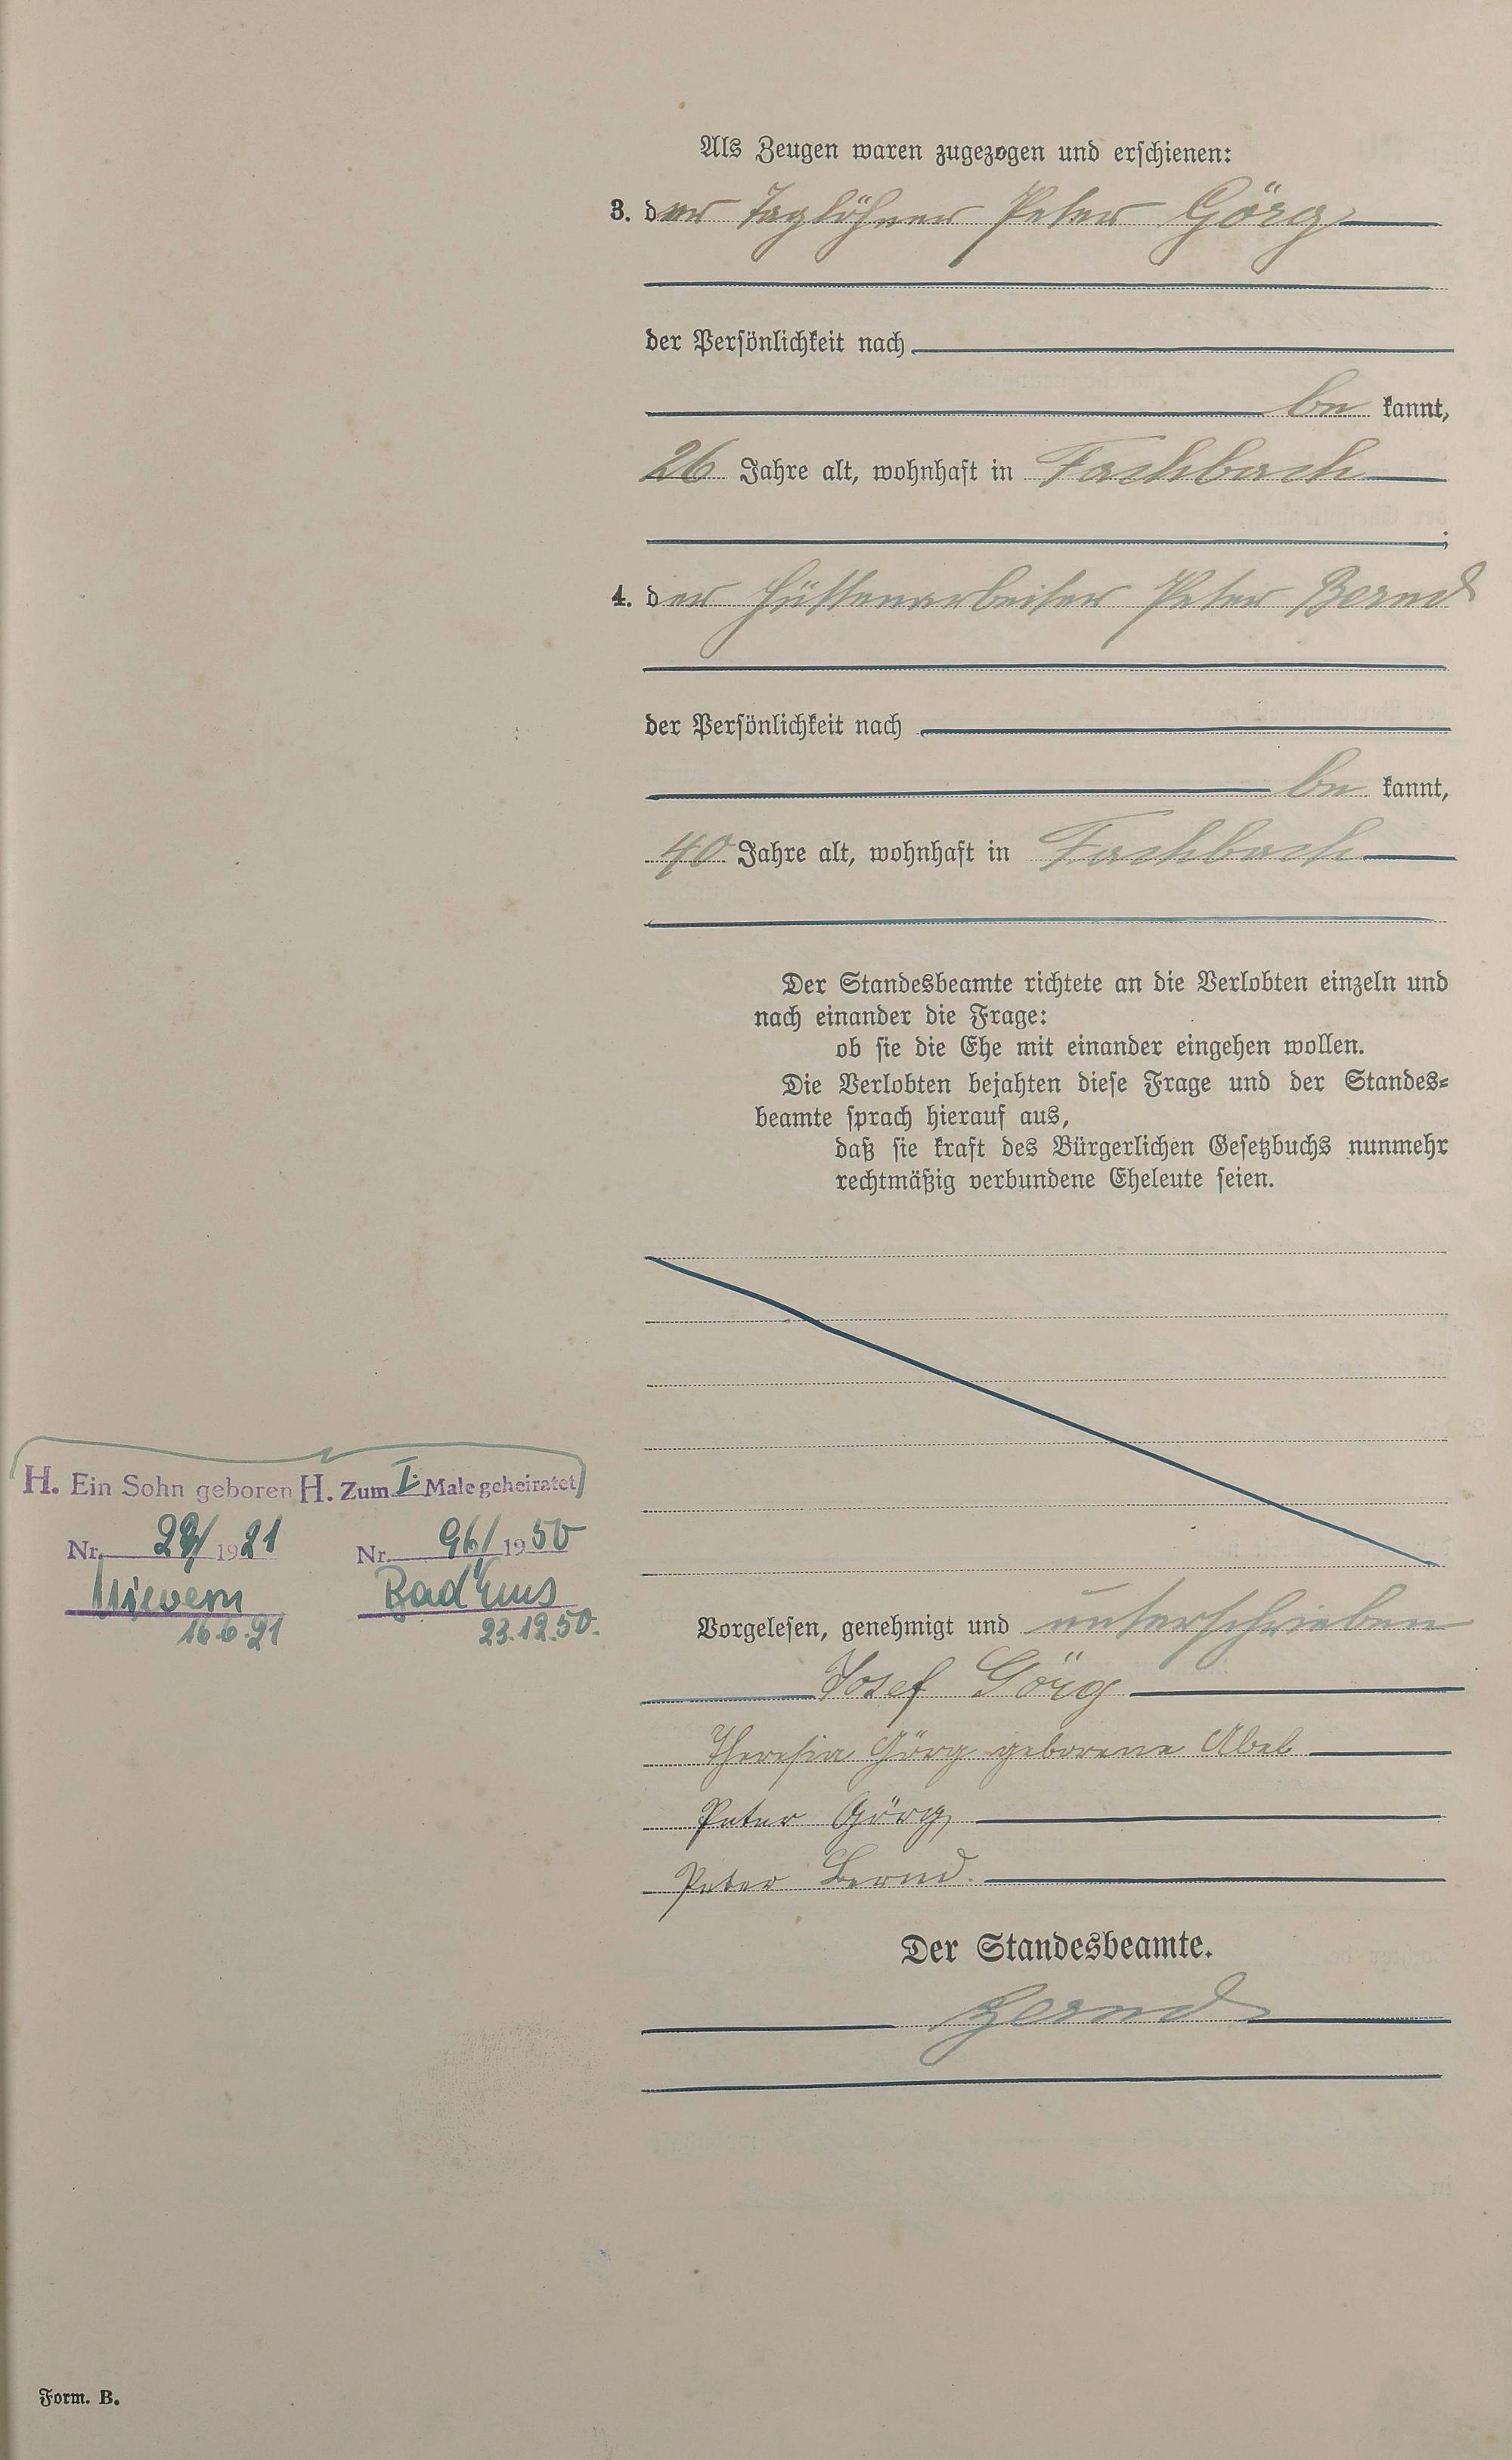 Als Zeugen waren zugezogen und erschienen:
3. der Taglöhner Peter Görg
der Persönlichkeit nach
be kannt,
26 Jahre alt, wohnhaft in Fachbach
;
4. der Hüttenarbeiter Peter Bernd
der Persönlichkeit nach
be kannt,
40 Jahre alt, wohnhaft in Fachbach
Der Standesbeamte richtete an die Verlobten einzeln und
nach einander die Frage:
ob sie die Ehe mit einander eingehen wollen.
Die Verlobten bejahten diese Frage und der Standes-
beamte sprach hierauf aus,
daß sie kraft des Bürgerlichen Gesetzbuchs nunmehr
rechtmäßig verbundene Eheleute seien.
H. Ein Sohn geboren
Nr. 1921
Nievern
16.6.21
H. Zum I. Male geheiratet
Nr. 96/1950
Bad Ems
23.12.50.
Vorgelesen, genehmigt und unterschrieben
Josef Görg
Theresia Görg geborene Abel
Peter Görg
Peter Bernd.
Der Standesbeamte.
Form. B.